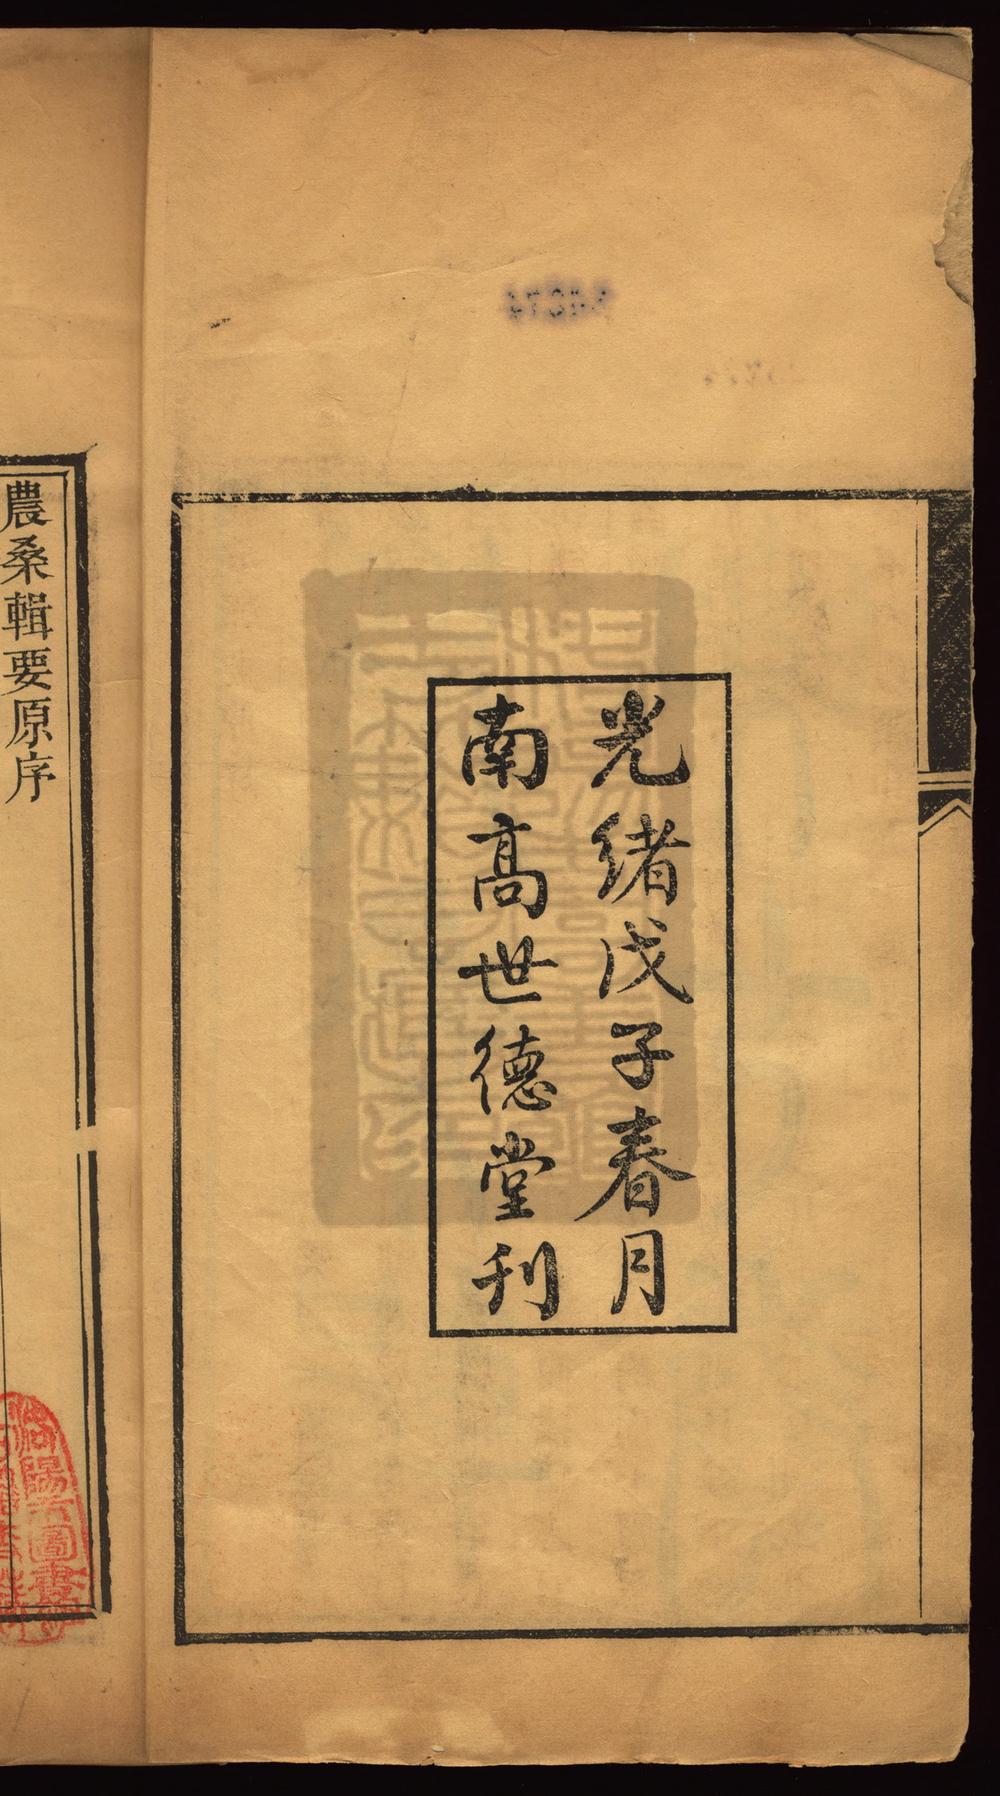 光緒戊子春月
南高世德堂刊
農桑輯要原序